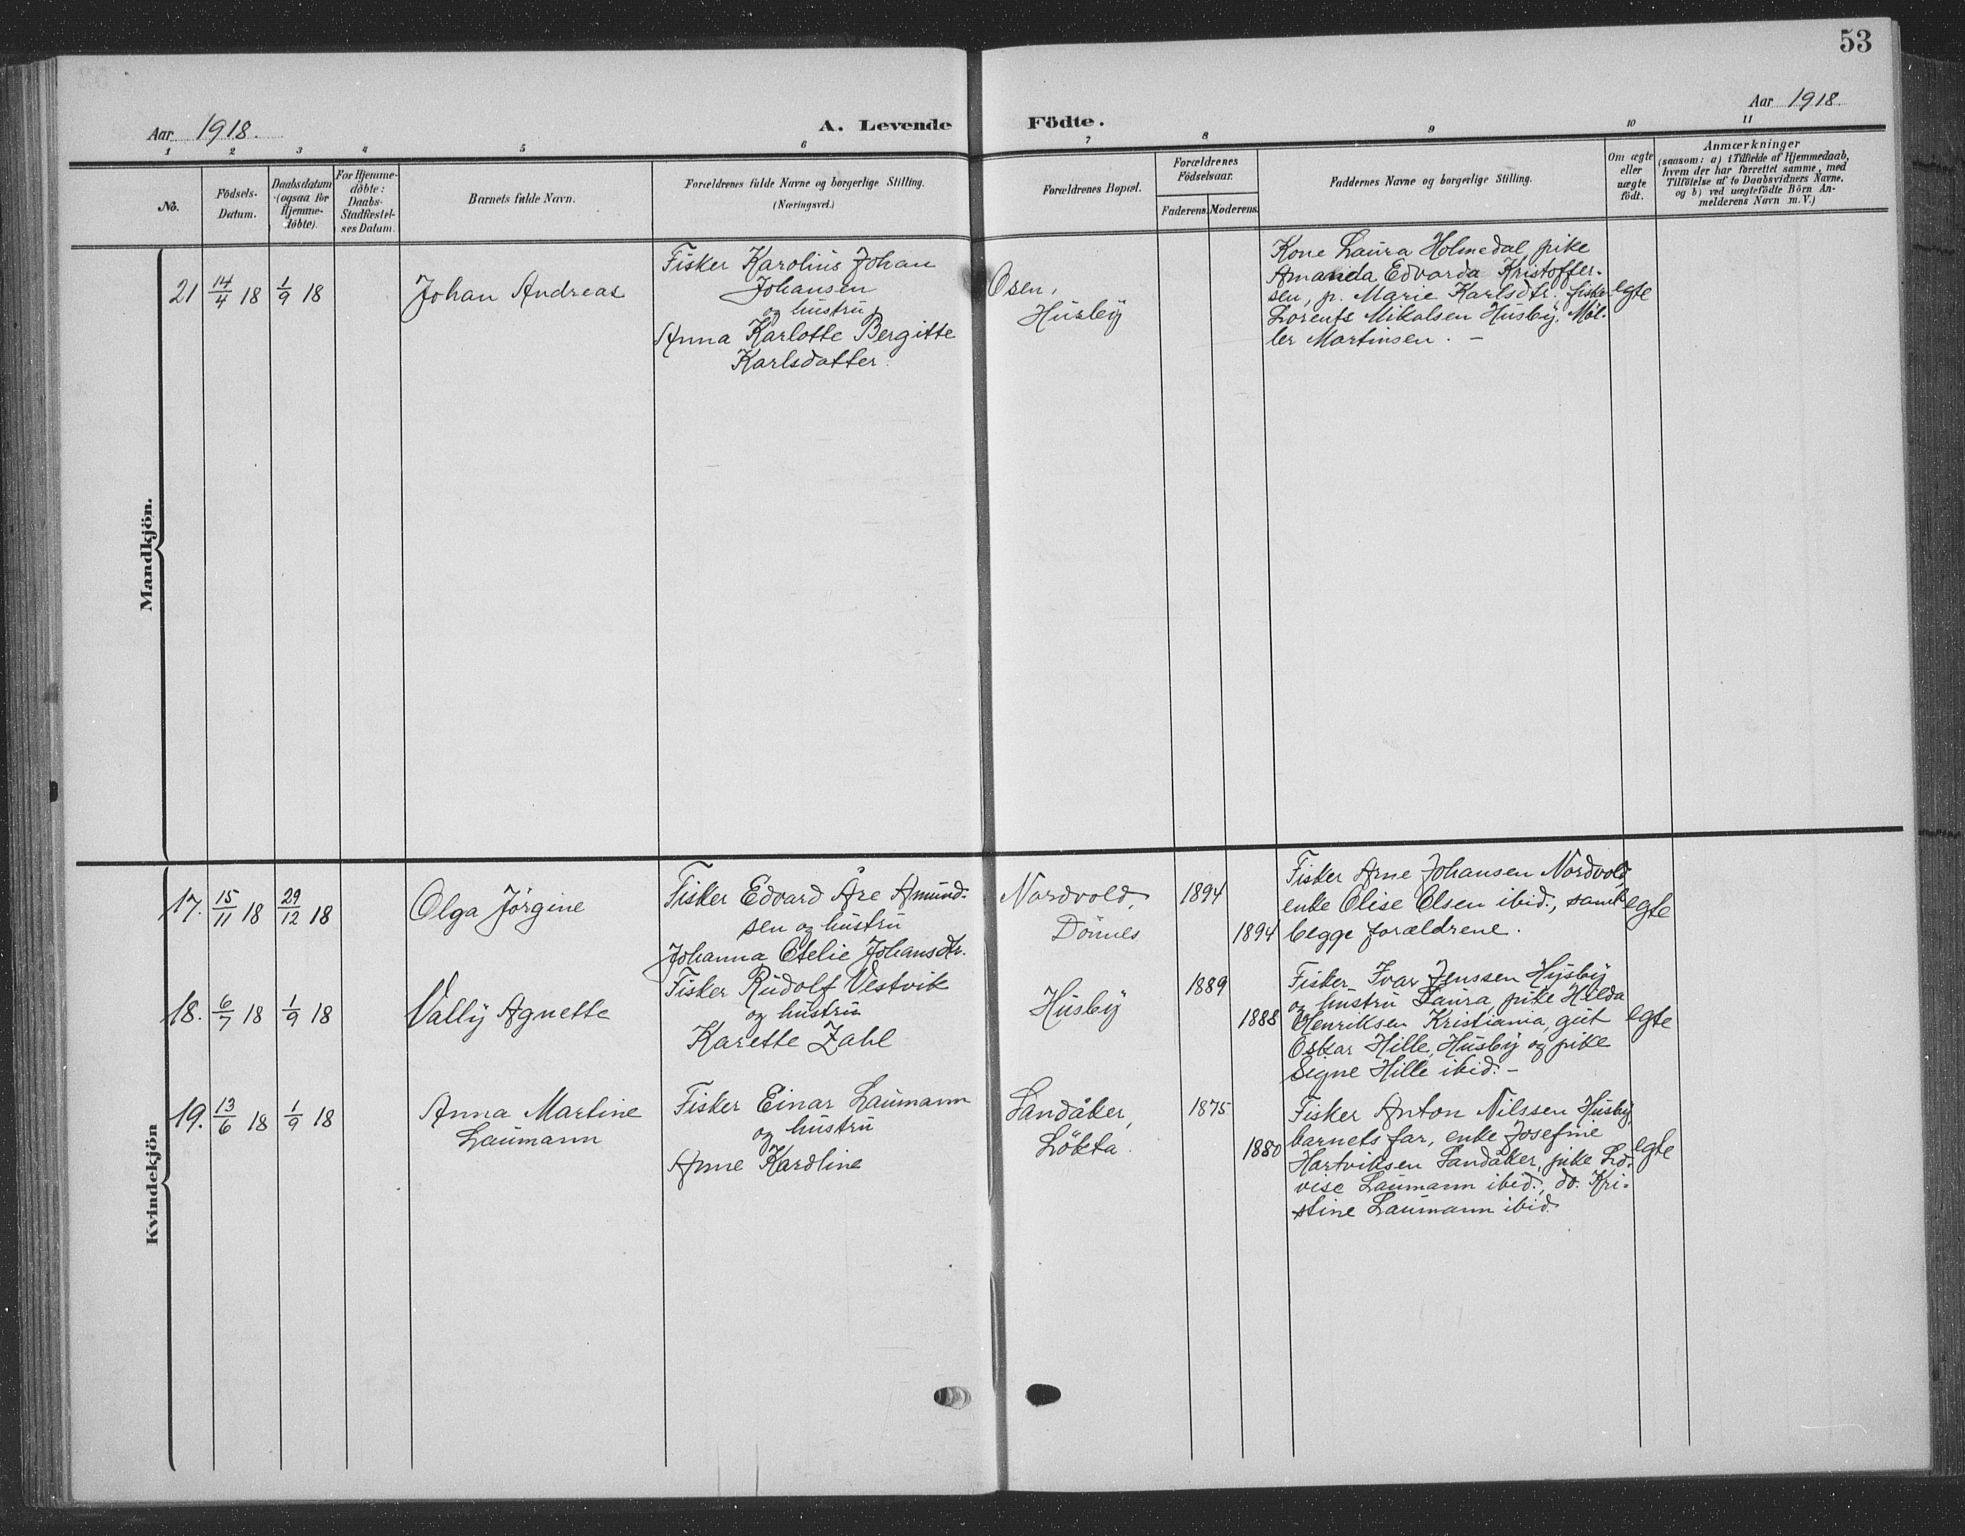 53
Aar 1918.
A. Levende Födte.
Aar 1918.
1 2 3 4 5 6 7 8 9 10 11
No.
Födsels-Datum.
Daabsdatum (ogsaa for Hjemme-döbte).
For Hjemme-döbte: Daabs-Stadfæstel-ses Datum.
Barnets fulde Navn.
Forældrenes fulde Navne og borgerlige Stilling.
(Næringsvei.)
Forældrenes Bopæl.
Forældrenes Födselsaar.
Faderens. Moderens.
Faddernes Navne og borgerlige Stilling.
Om ægte eller uægte födt.
Anmærkninger
(saasom: a) i Tilfælde af Hjemmedaab,
hvem der har forrettet samme, med
Tilföielse af to Daabsvidners Navne.
og b) ved uægtefödte Börn An-
melderens Navn m. V.)
Mandkjön.
21 14/4 18 1/9 18
Johan Andreas
Fisker Karolius Johan
Johansen
og hustru
Anna Karlotte Bergitte
Karlsdatter.
Osen,
Husby
Kone Laura Holmedal, pike
Amanda Edvarda Kristoffer-
sen, p. Marie Karlsdtr. fisker
Lorents Mikalsen Husby, Møl-
ler Martinsen. –
egte
Kvindekjön
17. 15/11 18 29/12 18
Olga Jørgine
Fisker Edvard Åre Amund-
sen og hustru
Johanna Otelie Johansdtr.
Nordvold,
Dönnes
1894
1894
Fisker Arne Johansen Nordvold,
enke Olise Olsen ibid., samt
begge forældrene.
egte
18. 6/7 18 1/9 18
Vally Agnette
Fisker Rudolf Vestvik
og hustru
Karette Zahl
Husby
1889
1888
Fisker Ivar Jenssen Husby
og hustru Laura, pike Hilda
Henriksen Kristiania, gut
Oskar Hille, Husby og pike
Signe Hille ibid. –
egte
19. 13/6 18 1/9 18
Anna Martine
Laumann
Fisker Einar Laumann
og hustru
Anne Karoline
Sandåker,
Lökta.
1875
1880
Fisker Anton Nilssen Husby,
barnets far, enke Josefine
Hartviksen Sandåker, pike Lo-
vise Laumann ibid., do. Kri-
stine Laumann ibid.
egte